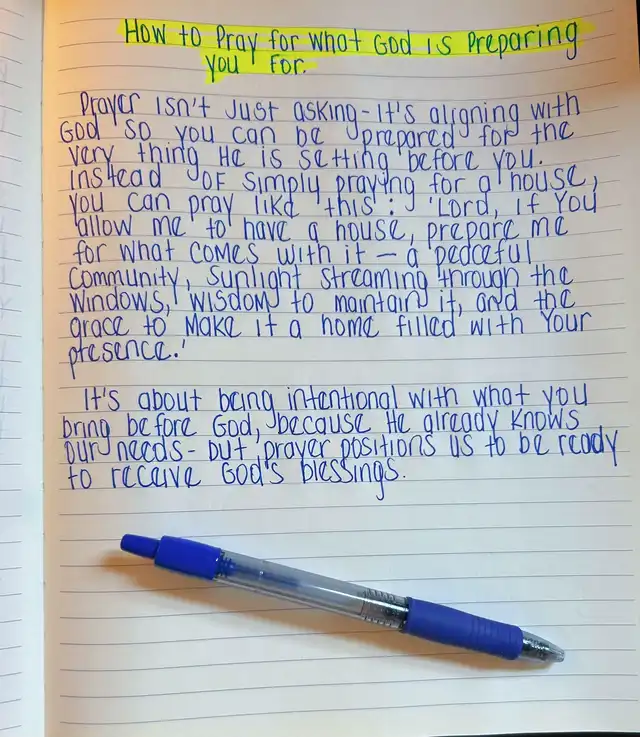 How to Pray for what God is Preparing
you For.
Prayer isn't just asking - it's aligning with
God so you can be prepared for the
very thing He is setting before you.
Instead of simply praying for a house,
you can pray like this: 'Lord, if You
allow me to have a house, prepare me
for what comes with it — a peaceful
community, sunlight streaming through the
windows, wisdom to maintain it, and the
grace to make it a home filled with Your
presence.'
It's about being intentional with what you
bring before God, because He already knows
our needs - but prayer positions us to be ready
to receive God's blessings.